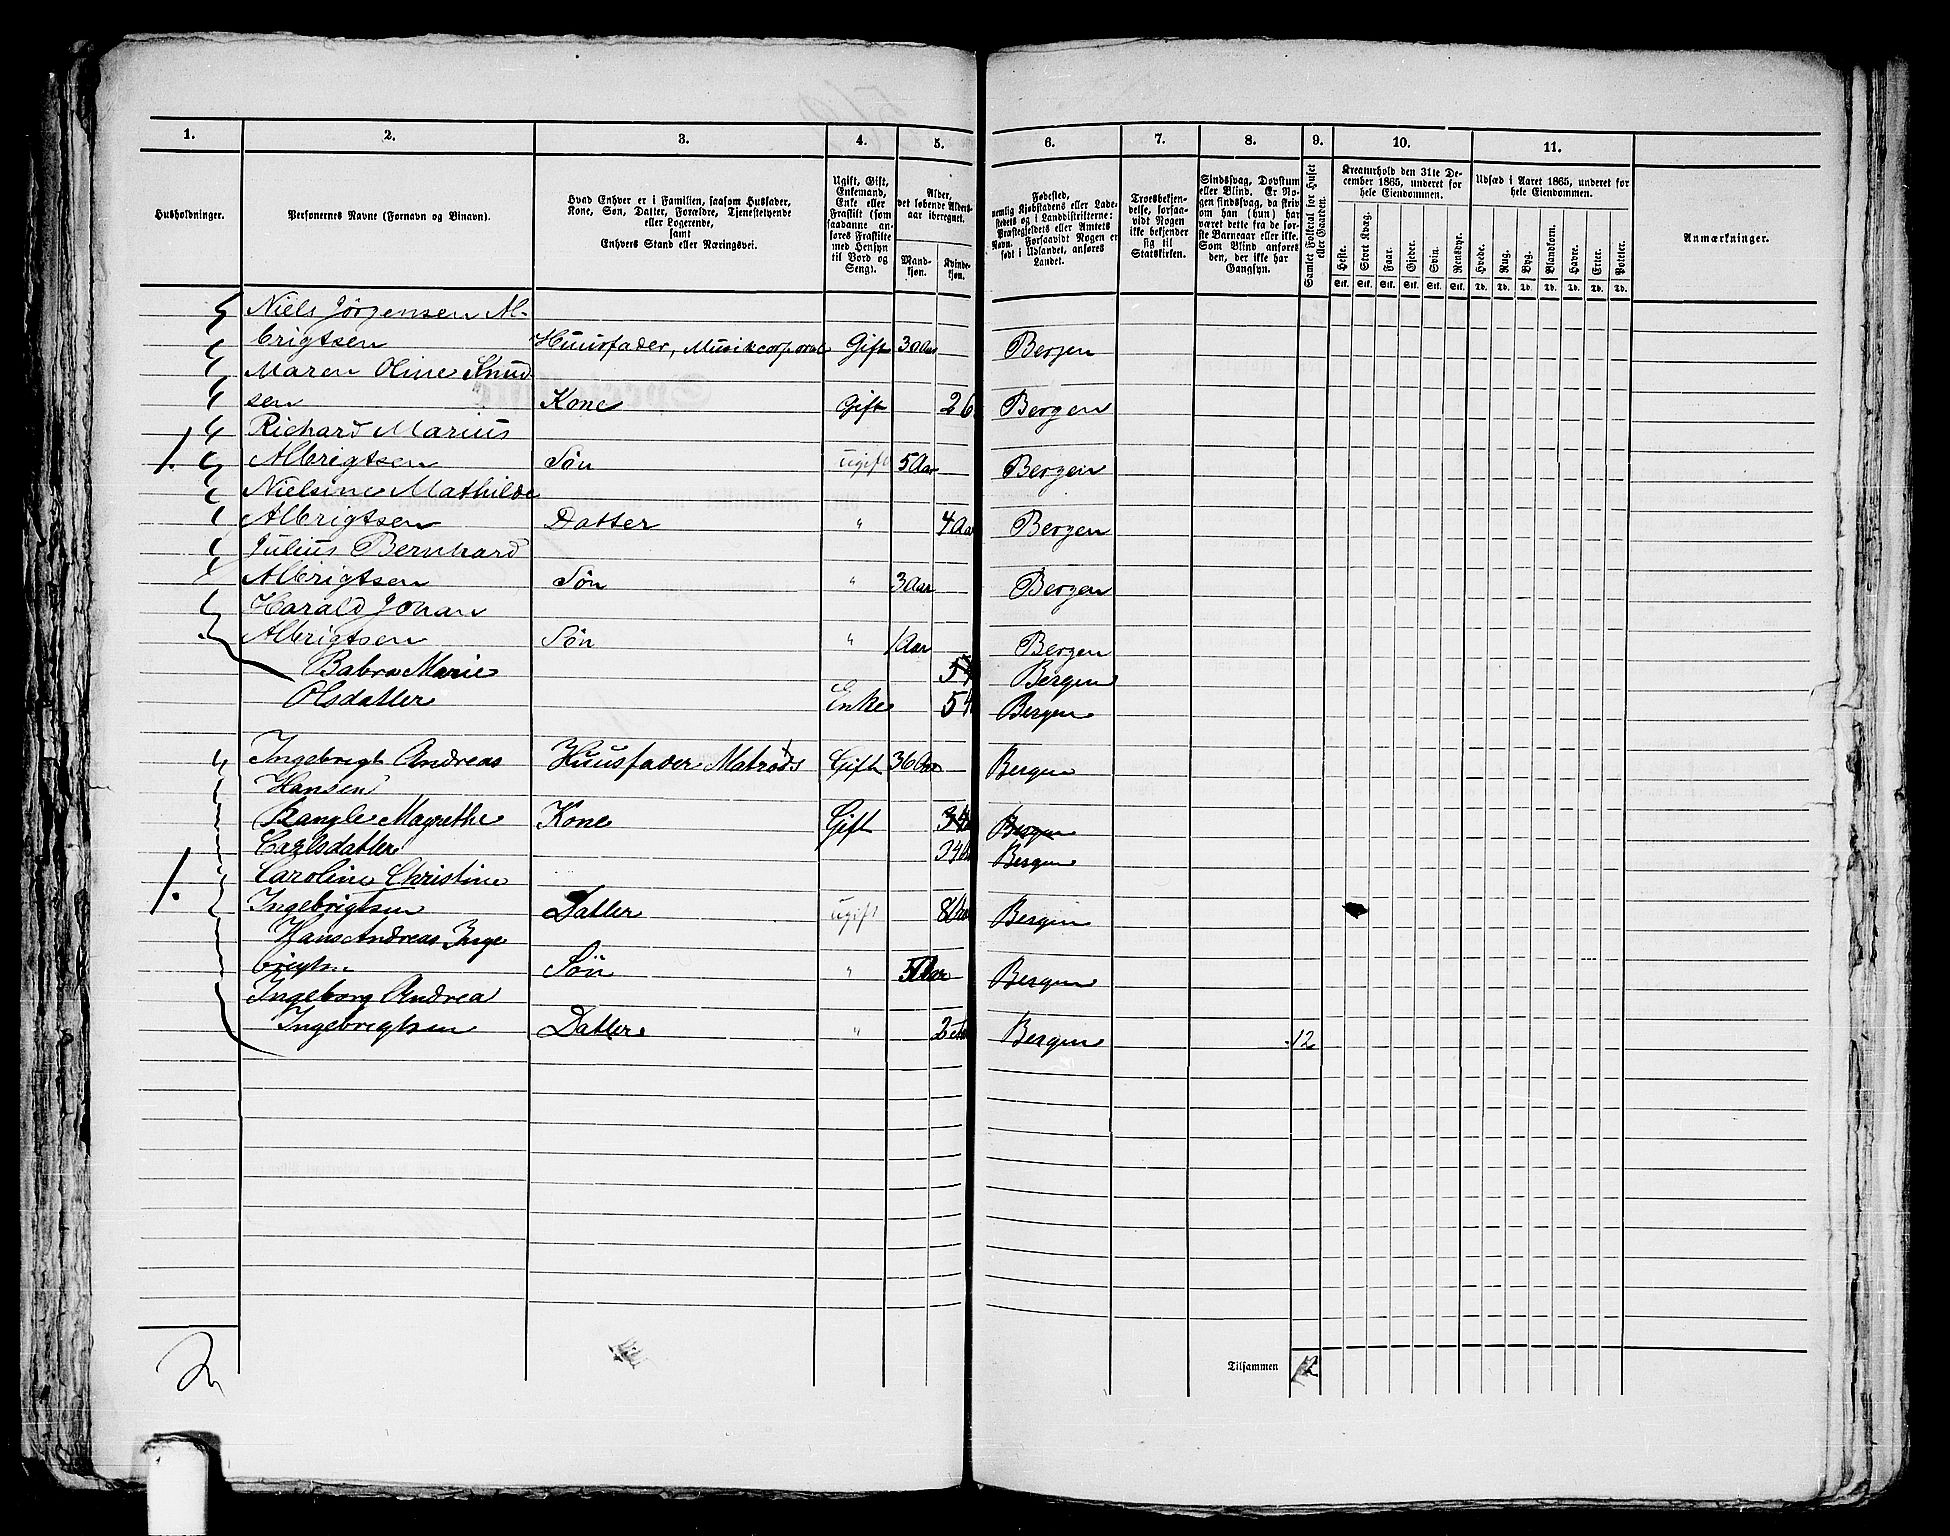 1. 2. 3. 4. 5. 6. 7. 8. 9. 10. 11.
Husholdninger.
Personernes Navne (Fornavn og Binavn).
Hvad Enhver er i Familien, saasom Husfader, Kone, Søn, Datter, Forældre, Tjenestetyende eller Logerende, samt Enhvers Stand eller Næringsvei.
Ugift, Gift, Enkemand, Enke eller Fraskilt (som saadanne anføres Fraskilte med Hensyn til Bord og Seng).
Alder, det løbende Aldersaar iberegnet.
Mandkjøn. Kvindekjøn.
Fødested, nemlig Kjøbstadens eller Ladestedets og i Landdistrikterne: Præstegjeldets eller Amtets Navn. Forsaavidt Nogen er født i Udlandet, anføres Landet.
Troesbekjendelse, forsaavidt Nogen ikke bekjender sig til Statskirken.
Sindssvag, Døvstum eller Blind. Er Nogen sindssvag, da skrives om han (hun) har været dette fra de første Barneaar eller ikke. Som Blind anføres den, der ikke har Gangsyn.
Samlet Folketal for Huset eller Gaarden.
Kreaturhold den 31te December 1865, underet for hele Eiendommen.
Heste. Stort Kvæg. Faar. Gjeder. Svin. Rensdyr.
Stk. Stk. Stk. Stk. Stk. Stk.
Udsæd i Aaret 1865, underet for hele Eiendommen.
Hvede. Rug. Byg. Blandkorn. Havre. Erter. Poteter.
Td. Td. Td. Td. Td. Td. Td.
Anmærkninger.
Niels Jörgensen Al-
brigtsen Huusfader, Musikcorporal Gift 30 Aar Bergen
Maren Oline Knud
sen Kone Gift 26 Bergen
Richard Marius
1. Albrigtsen Søn ugift 5 Aar Bergen
Nielsine Mathilde
Albrigtsen Datter " 4 Aar Bergen
Julius Bernhard
Albrigtsen Søn " 3 Aar Bergen
Harald Johan
Albrigtsen Søn " 1 Aar Bergen
Babra Marie 54 Bergen
Olsdatter Enke 54 Bergen
Ingebrigt Andreas Huusfader Matrøds Gift 36 Aar Bergen
Hansen
Magrethe Kone Gift 34 Bergen
Carlsdatter 34 Bergen
Caroline Christine
1. Ingebrigtsen Datter ugift 8 Aar Bergen
Hans Andreas Inge
brigtsn Søn " 5 Aar Bergen
Ingeborg Andrea
Ingebrigtsen Datter " 2 Bergen 12
2
Tilsammen 12